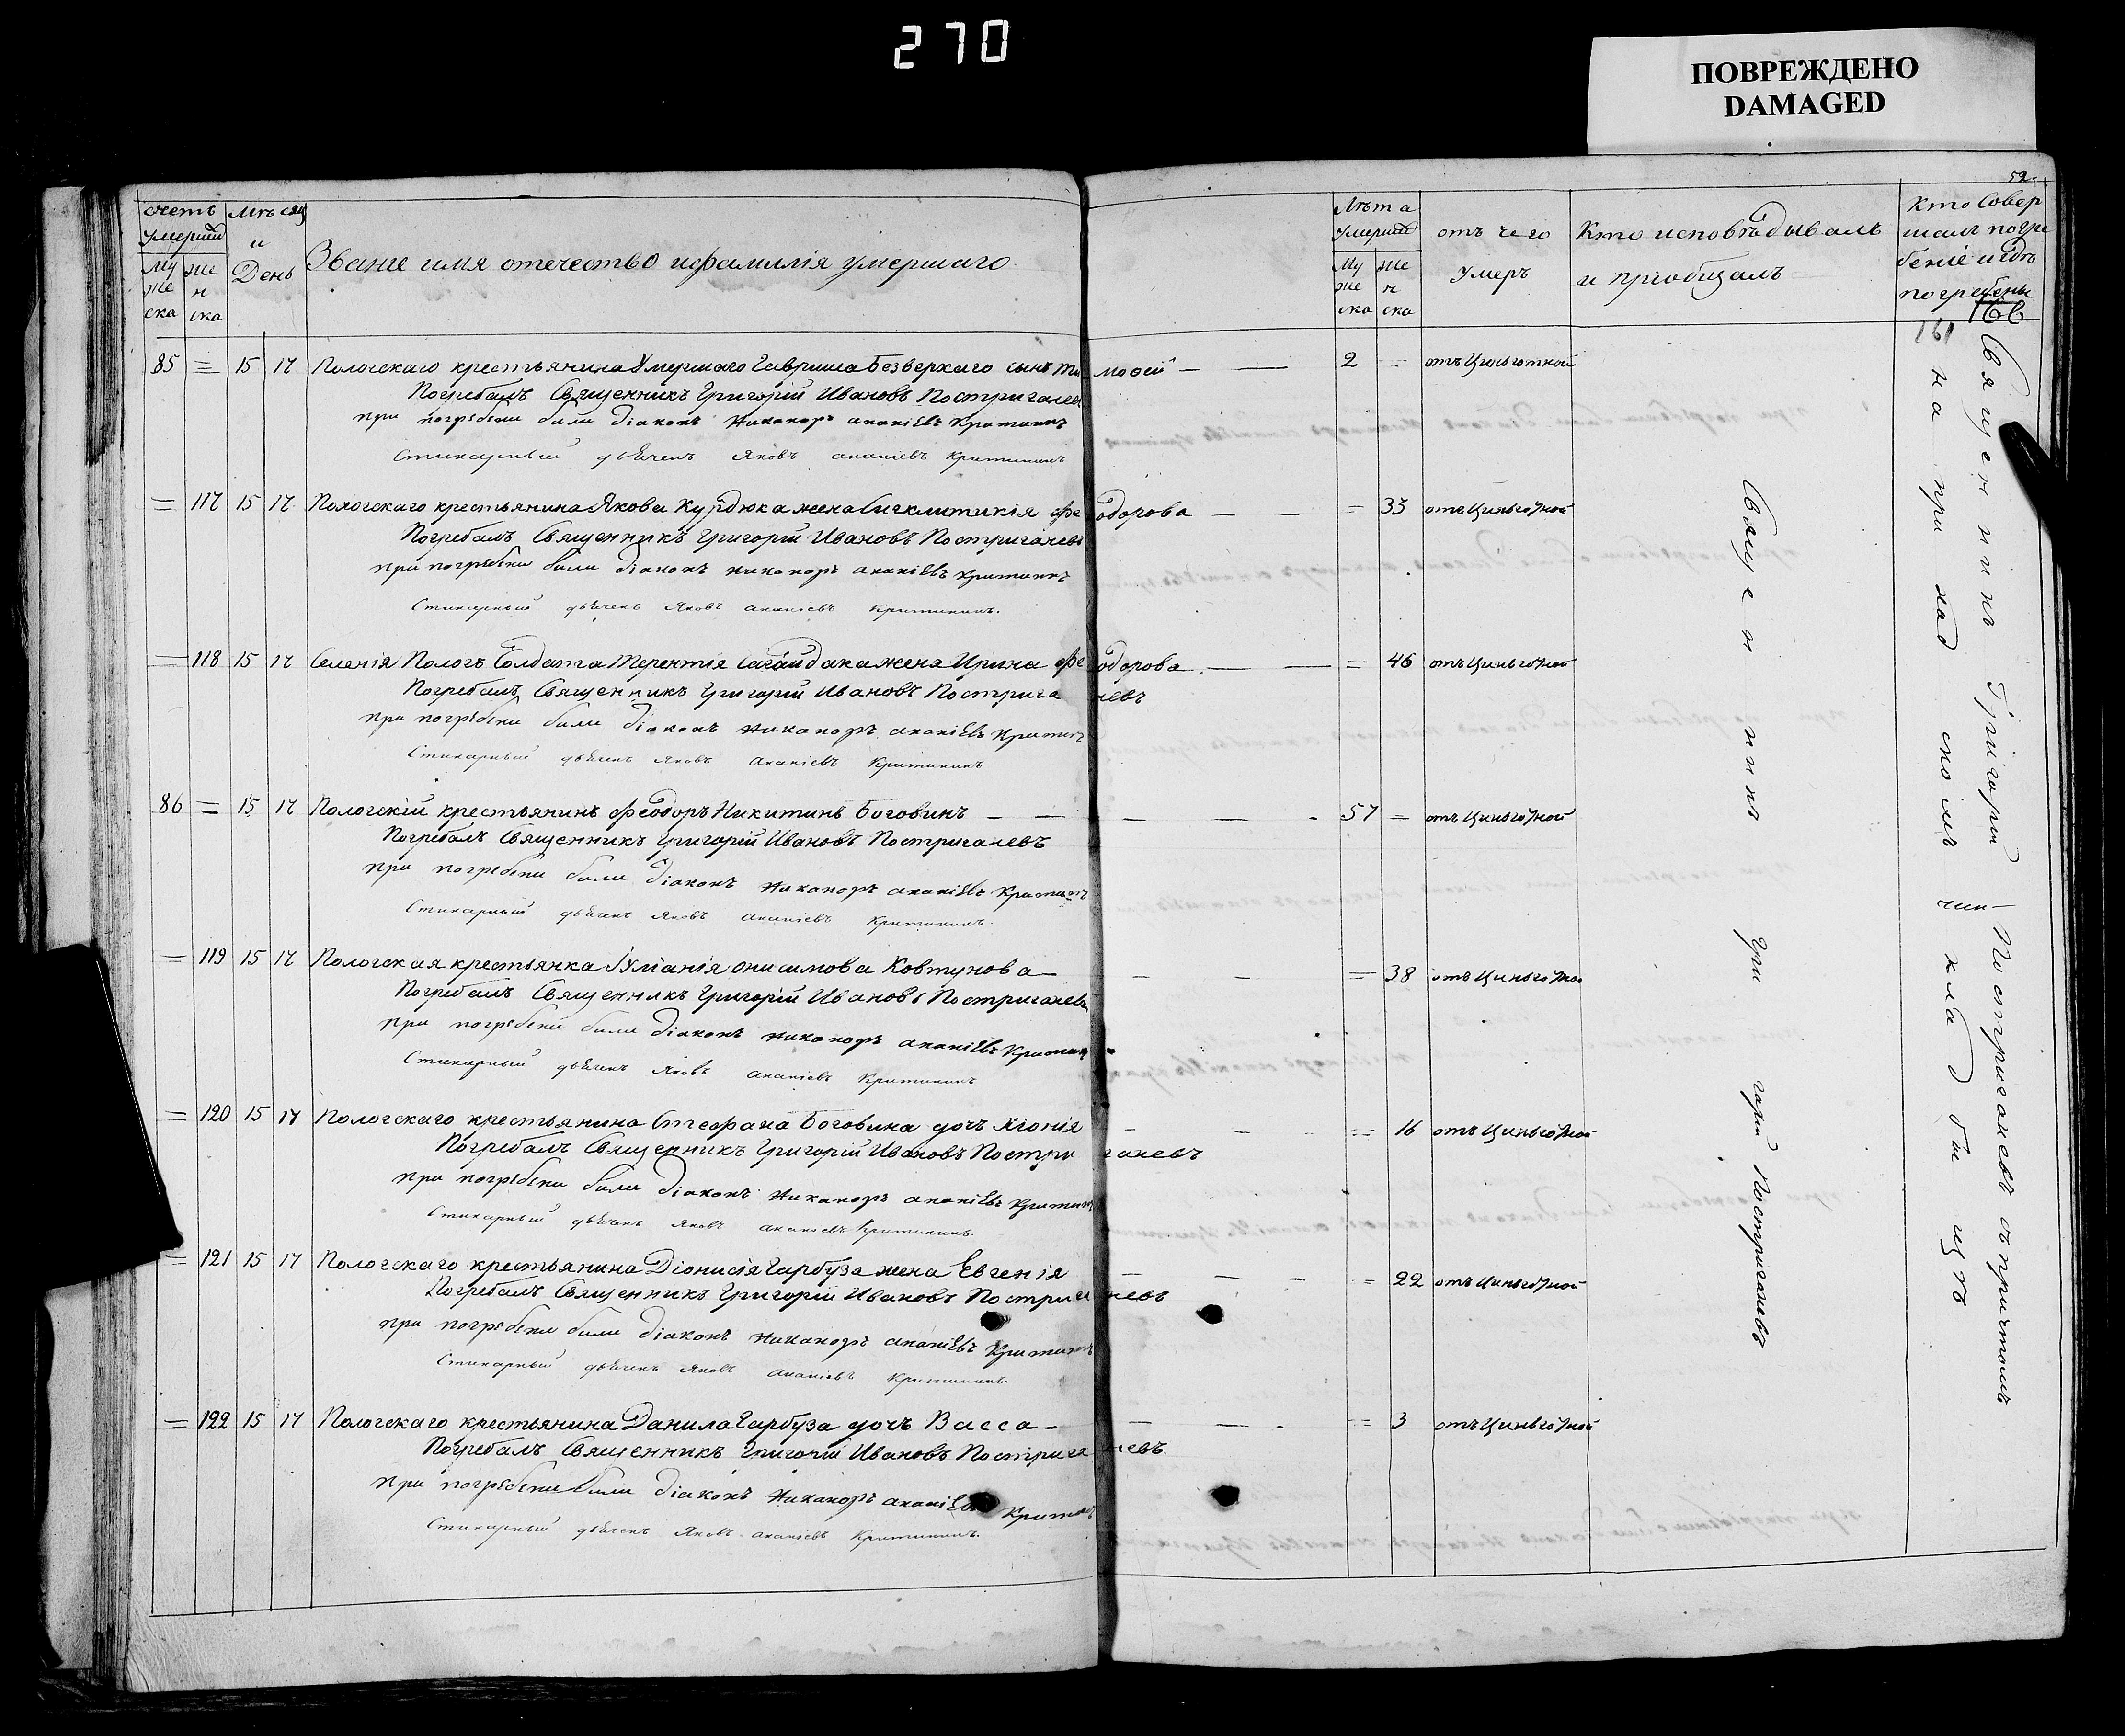 270
ПОВРЕЖДЕНО
DAMAGED
52
счетъ умершй
Му же ска
же н ска
мѣсяц и День
Званіе имя отечество ифамилія умершаго
Лѣта умершй
Му же ска
же н ска
отъ чего умеръ
Кто исповѣдывалъ и приобщалъ
Кто Совер шалъ погре беніе игдѣ погребены
161
85 = 15 17 Пологскаго крестьянина Умершаго Гавриша Безверхаго сынъ Тимофей — — 2 = отъ Цынготной
Погребалъ Священникъ Григорій Ивановъ Постригалевъ
при погребени были діаконъ Никаноръ ананіевъ Критининъ
Стихарный дьячекъ Яковъ ананіевъ Критининъ
= 117 15 17 Пологскаго крестьянина Якова Курдюка жена Сигклитикія Феодорова — — = 33 отъ Цынготной
Погребалъ Священникъ Григорій Ивановъ Постригалевъ
при погребени были діаконъ Никаноръ ананіевъ Критининъ
Стихарный дьячекъ Яковъ ананіевъ Критининъ.
= 118 15 17 Селенія Пологъ Солдата Терентія Сагайдака жена Ирина Феодорова. — — = 46 отъ Цынготной
Погребалъ Священникъ Григорій Ивановъ Постригалевъ
при погребени были діаконъ Никаноръ ананіевъ Критининъ
Стихарный дьячекъ Яковъ Ананіевъ Критининъ
86 = 15 17 Пологскій крестьянинъ Феодоръ Никитинъ Боговинъ — — — — 57 = отъ Цынготной
Погребалъ Священникъ Григорій Ивановъ Постригалевъ
при погребени были діаконъ Никаноръ ананіевъ Критининъ
Стихарный дьячекъ Яковъ ананіевъ Критининъ.
= 119 15 17 Пологская крестьянка Іуліанія Онисимова Ковтунова — — — = 38 отъ Цынготной
Погребалъ Священникъ Григорій Ивановъ Постригалевъ
при погребени были діаконъ Никаноръ ананіевъ Критининъ
Стихарный дьячекъ Яковъ Ананіевъ Критининъ
= 120 15 17 Пологскаго крестьянина Стефана Боговина дочь Хіонія — — = 16 отъ Цынготной
Погребалъ Священникъ Григорій Ивановъ Постригалевъ
при погребени были діаконъ Никаноръ ананіевъ Критининъ
Стихарный дьячекъ Яковъ ананіевъ Критининъ.
= 121 15 17 Пологскаго крестьянина Діонисія Гарбуза жена Евгенія — — — = 22 отъ Цынготной
Погребалъ Священникъ Григорій Ивановъ Постригалевъ
при погребени были діаконъ Никаноръ ананіевъ Критининъ
Стихарный дьячекъ Яковъ ананіевъ Критининъ.
= 122 15 17 Пологскаго крестьянина Данила Гарбуза дочь Васса — — — = 3 отъ Цынготной
Погребалъ Священникъ Григорій Ивановъ Постригалевъ.
при погребени были діаконъ Никаноръ ананіевъ Критининъ
Стихарный дьячекъ Яковъ ананіевъ Критининъ.
Священникъ Григорій Постригалевъ
Священникъ Григорій Постригалевъ съ причтомъ
на приходскомъ кладбищѣ